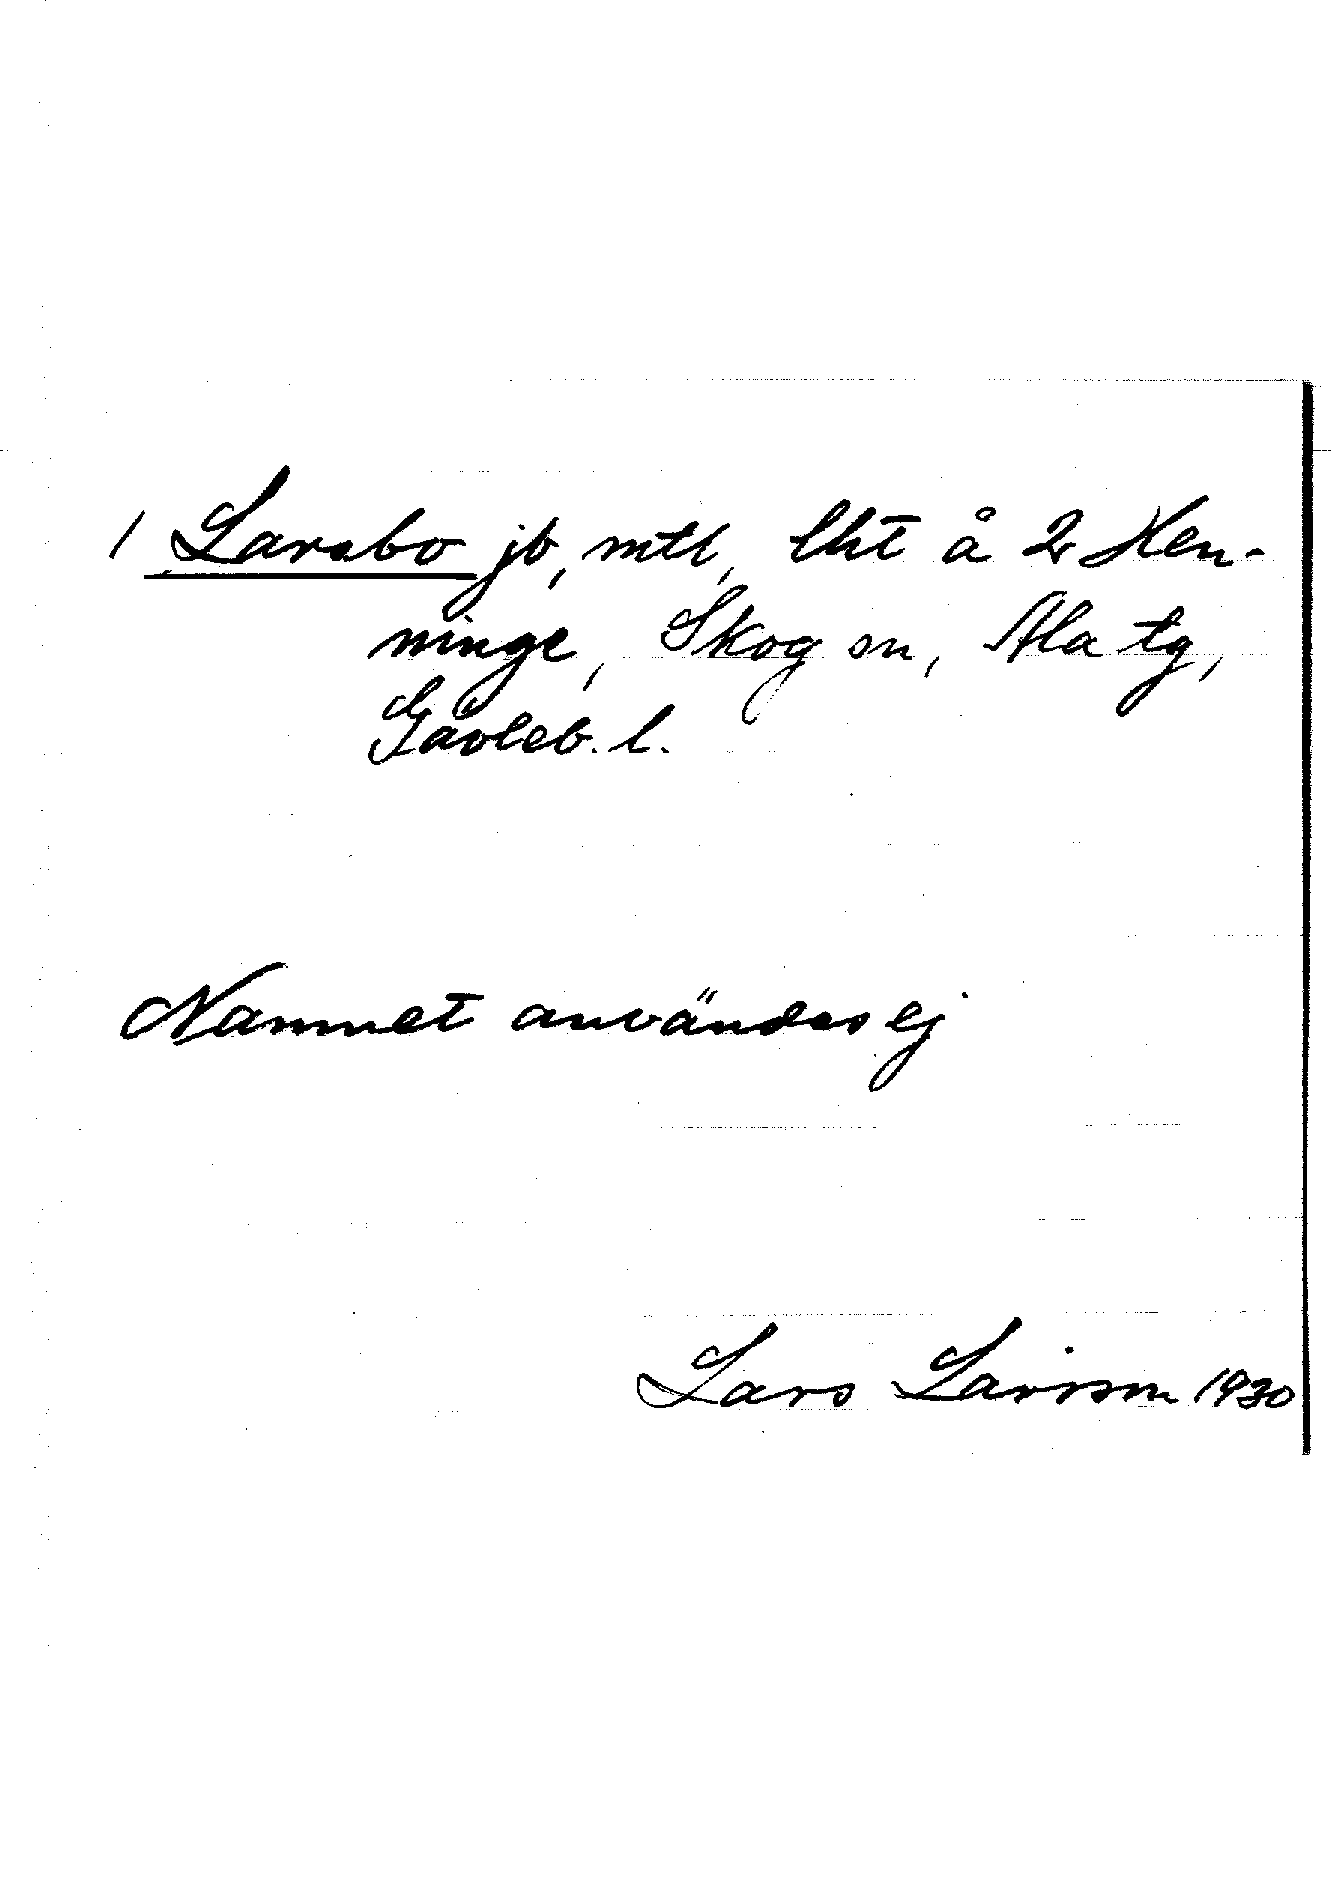 1 Larsbo jb, mtl, lht å 2 Hen-
ninge, Skog sn, Ala tg,
Gävleb. l.
Namnet användes ej
Lars Larsson 1930